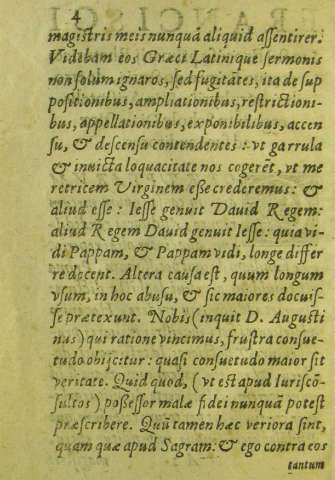 4
magistris meis nunquã aliquid assentirer.
Videbam eos Græci Latinique sermonis
non solum ignaros, sed fugitãtes, ita de sup
positionibus, ampliationibus, restrictioni-
bus, appellationibus, exponibilibus, accen
su, & descensu contendentes: vt garrula
& inuicta loquacitate nos cogerẽt, vt me
retricem Virginem esse crederemus: &
aliud esse: Iesse genuit Dauid Regem:
aliud Regem Dauid genuit Iesse: quia vi-
di Pappam, & Pappam vidi, longe differ
re docent. Altera causa est, quum longum
vsum, in hoc abusu, & sic maiores docuis-
se prætexunt. Nobis (inquit D. Augusti
nus) qui ratione vincimus, frustra consue-
tudo obijcitur: quasi consuetudo maior sit
veritate. Quid quod, (vt est apud Iuriscõ-
sultos) possessor malæ fidei nunquã potest
præscribere. Quũ tamen hæc veriora sint,
quam quæ apud Sagram: & ego contra eos
tantum